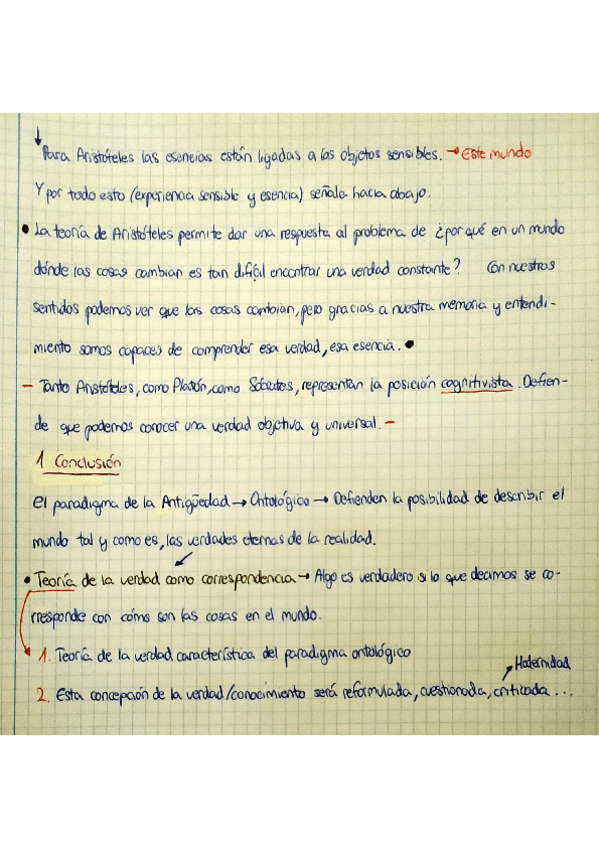 ↓ Para Aristóteles las esencias están ligadas a los objetos sensibles. → Este mundo
Y por todo esto (experiencia sensible y esencia) señala hacia abajo.
• La teoría de Aristóteles permite dar una respuesta al problema de ¿por qué en un mundo
dónde las cosas cambian es tan difícil encontrar una verdad constante? Con nuestros
sentidos podemos ver que las cosas cambian, pero gracias a nuestra memoria y entendi-
miento somos capaces de comprender esa verdad, esa esencia. •
- Tanto Aristóteles, como Platón, como Sócrates, representan la posición cognitivista. Defien-
de que podemos conocer una verdad objetiva y universal. -
1 Conclusión
El paradigma de la Antigüedad → Ontológico → Defienden la posibilidad de describir el
mundo tal y como es, las verdades eternas de la realidad.
• Teoría de la verdad como correspondencia → Algo es verdadero si lo que decimos se co-
rresponde con cómo son las cosas en el mundo.
1. Teoría de la verdad característica del paradigma ontológico
Modernidad
2. Esta concepción de la verdad/conocimiento será reformulada, cuestionada, criticada...